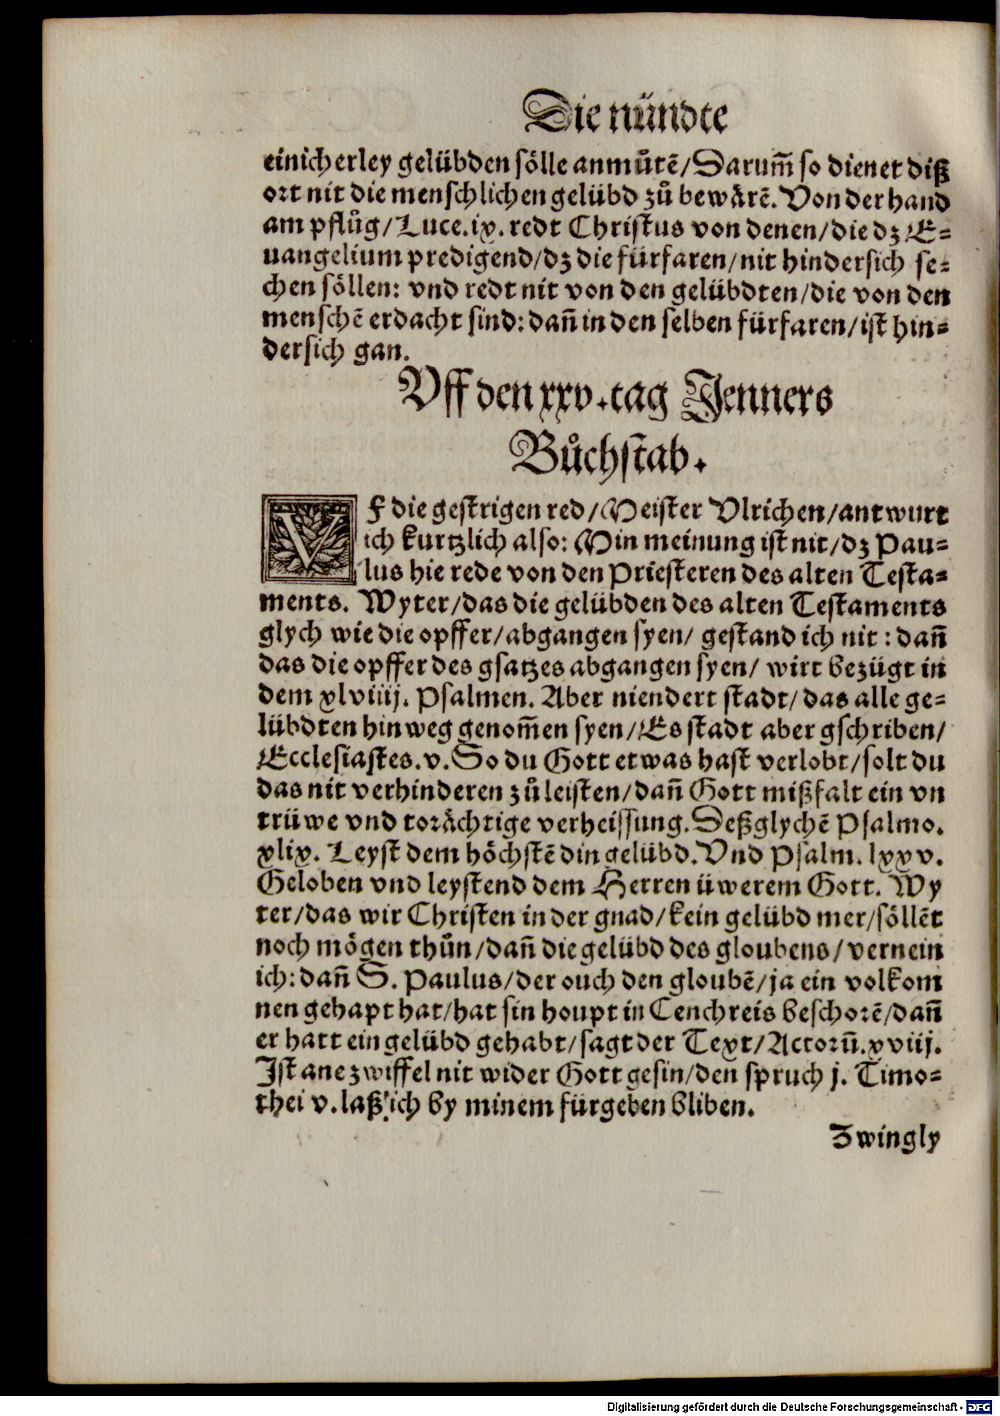 Die nündte
einicherley gelübden sölle anmůtē/Darum̄ so dienet diß
ort nit die menschlichen gelübd zů bewårē. Von der hand
am pflůg/Luce.ix. redt Christus von denen/die dz E-
uangelium predigend/dz die fürfaren/nit hindersich se-
chen söllen: vnd redt nit von den gelübdten/die von den
menschē erdacht sind: dan̄ in den selben fürfaren/ist hin-
dersich gan.
Vff den xxv. tag Jenners
Bůchstab.
VF die gestrigen red/Meister Vlrichen/antwurt
ich kurtzlich also: Min meinung ist nit/dz Pau-
lus hie rede von den Priesteren des alten Testa-
ments. Wyter/das die gelübden des alten Testaments
glych wie die opffer/abgangen syen/ gestand ich nit: dan̄
das die opffer des gsatzes abgangen syen/ wirt bezügt in
dem xlviiij. Psalmen. Aber niendert stadt/das alle ge-
lübdten hinweg genom̄en syen/Es stadt aber gschriben/
Ecclesiastes.v. So du Gott etwas hast verlobt/solt du
das nit verhinderen zů leisten/dan̄ Gott mißfalt ein vn
trüwe vnd torächtige verheissung. Deßglychē Psalmo.
xlix. Leyst dem höchstē din gelübd. Vnd Psalm. lxxv.
Geloben vnd leystend dem Herren üwerem Gott. Wy
ter/das wir Christen in der gnad/kein gelübd mer/söllēt
noch mögen thůn/dan̄ die gelübd des gloubens/vernein
ich: dan̄ S. Paulus/der ouch den gloubē/ja ein volkom
nen gehapt hat/hat sin houpt in Cenchreis beschorē/dan̄
er hatt ein gelübd gehabt/sagt der Text/Actorū.xviij.
Ist ane zwiffel nit wider Gott gesin/den spruch j. Timo-
thei v. laß ich by minem fürgeben bliben.
Zwingly
Digitalisierung gefördert durch die Deutsche Forschungsgemeinschaft - DFG